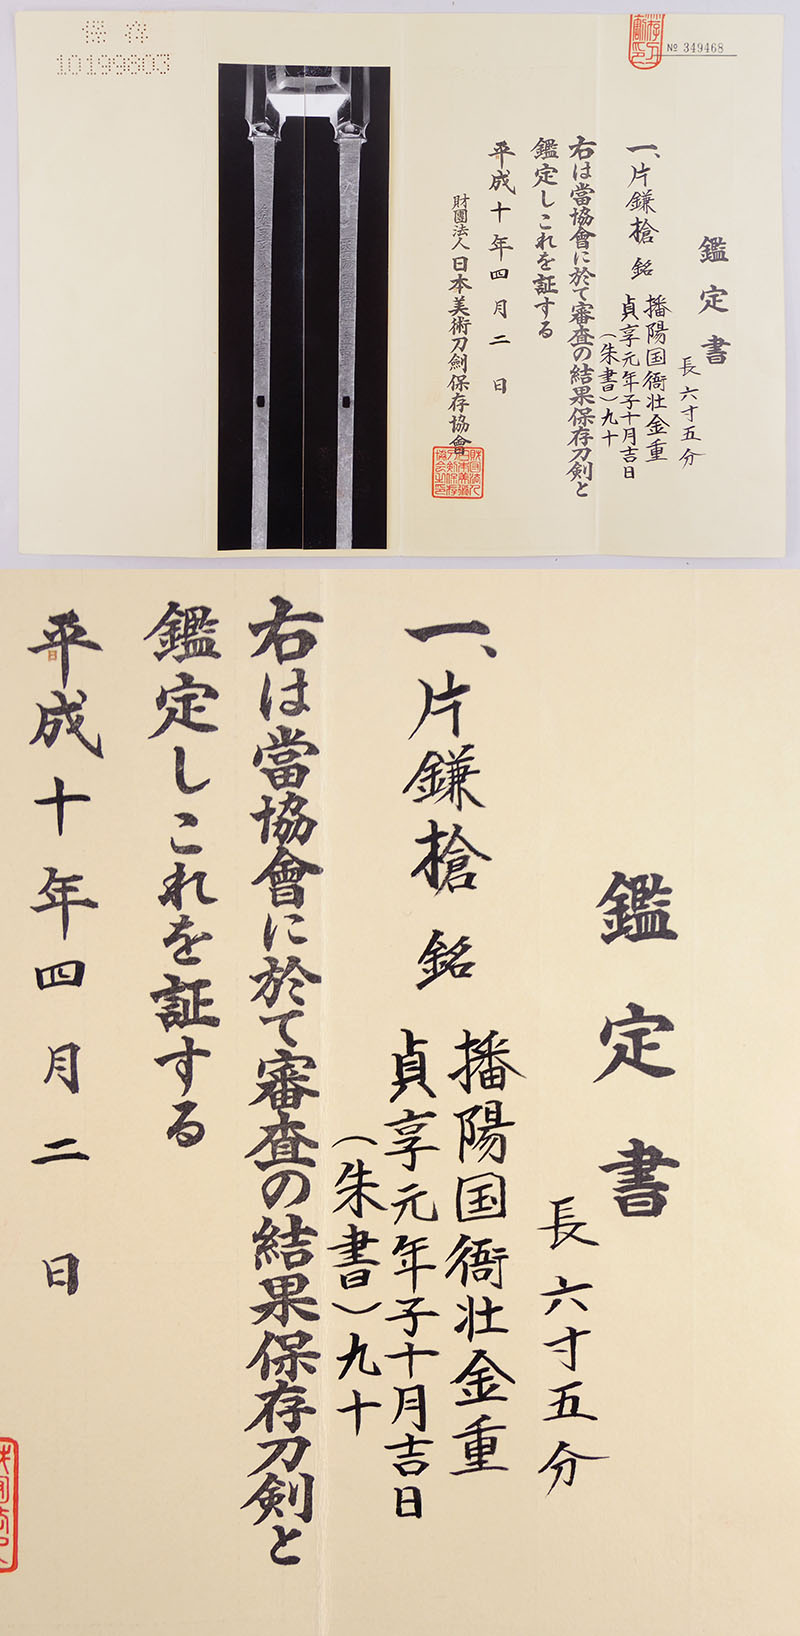 保存
10199803
No 349468
鑑定書
一、片鎌槍 銘 播陽国衙壮金重
貞享元年子十月吉日
(朱書)九十
長六寸五分
右は當協會に於て審査の結果保存刀剣と
鑑定しこれを証する
平成十年四月二日
財團法人日本美術刀剣保存協會
鑑定書
長六寸五分
一、片鎌槍 銘 播陽国衙壮金重
貞享元年子十月吉日
(朱書)九十
右は當協會に於て審査の結果保存刀剣と
鑑定しこれを証する
平成十年四月二日